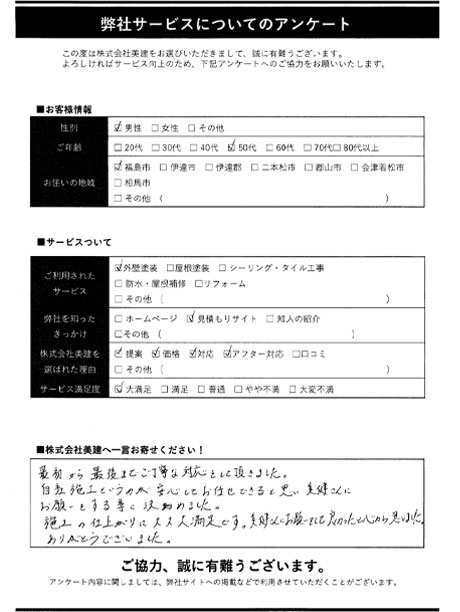 弊社サービスについてのアンケート
この度は株式会社美建をお選びいただきまして、誠に有難うございます。
よろしければサービス向上のため、下記アンケートへのご協力をお願いいたします。
■お客様情報
性別 ☑男性 □女性 □その他
ご年齢 □20代 □30代 □40代 ☑50代 □60代 □70代□80代以上
☑福島市 □伊達市 □伊達郡 □二本松市 □郡山市 □会津若松市
お住いの地域 □相馬市
□その他 ( )
■サービスついて
☑外壁塗装 □屋根塗装 □シーリング・タイル工事
ご利用されたサービス □防水・屋根補修 □リフォーム
□その他 ( )
弊社を知ったきっかけ □ホームページ ☑見積もりサイト □知人の紹介
□その他 ( )
株式会社美建を選ばれた理由 ☑提案 ☑価格 ☑対応 ☑アフター対応 □口コミ
□その他 ( )
サービス満足度 ☑大満足 □満足 □普通 □やや不満 □大変不満
■株式会社美建へ一言お寄せください！
最初から最後までご丁寧な対応をして頂きました。
自社施工というのが安心してお任せできると思い美建さんに
お願いをする事に決めました。
施工の仕上がりに大大大満足です。美建さんにお願いして良かったと心から思いました。
ありがとうございました。
ご協力、誠に有難うございます。
アンケート内容に関しましては、弊社サイトへの掲載などで利用させていただくことがございます。